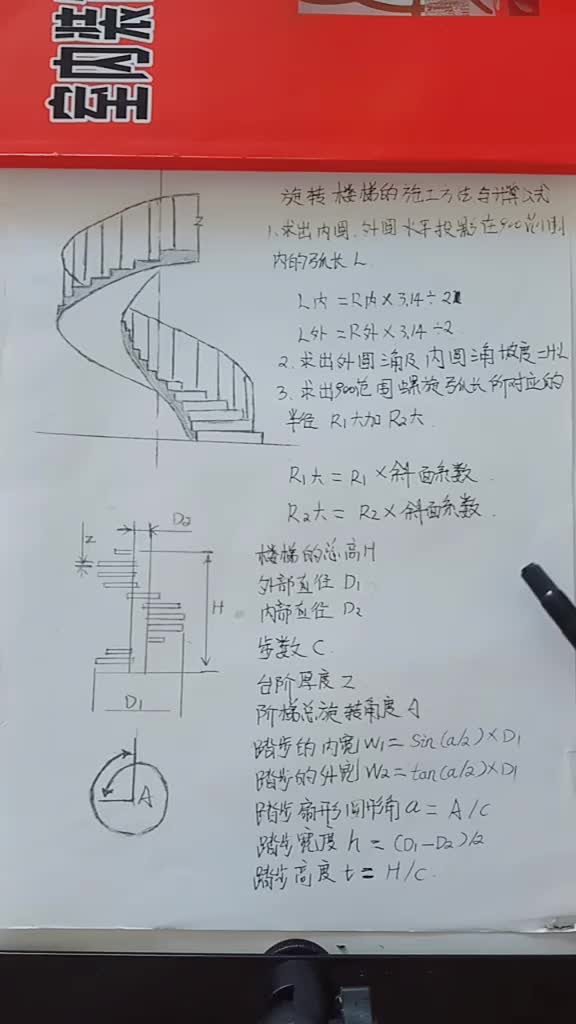 室内装
旋转楼梯的施工方法与计算公式
1.求出内圆.外圆水平投影在900范围
内的弧长L
L内=R内×3.14÷2
L外=R外×3.14÷2
2.求出外圆三角及内圆三角坡度=HL
3.求出900范围螺旋弧长所对应的
半径R1大加R2大.
R1大=R1×斜面系数
R2大=R2×斜面系数.
楼梯的总高H
外部直径D1
内部直径D2
步数C.
台阶厚度Z
阶梯总旋转角度A
踏步的内宽W1=Sin(a/2)×D1
踏步的外宽W2=tan(a/2)×D1
踏步扇形圆形角a=A/C
踏步宽度h=(D1-D2)/2
踏步高度t=H/C.
Z
D2
Z
H
D1
A